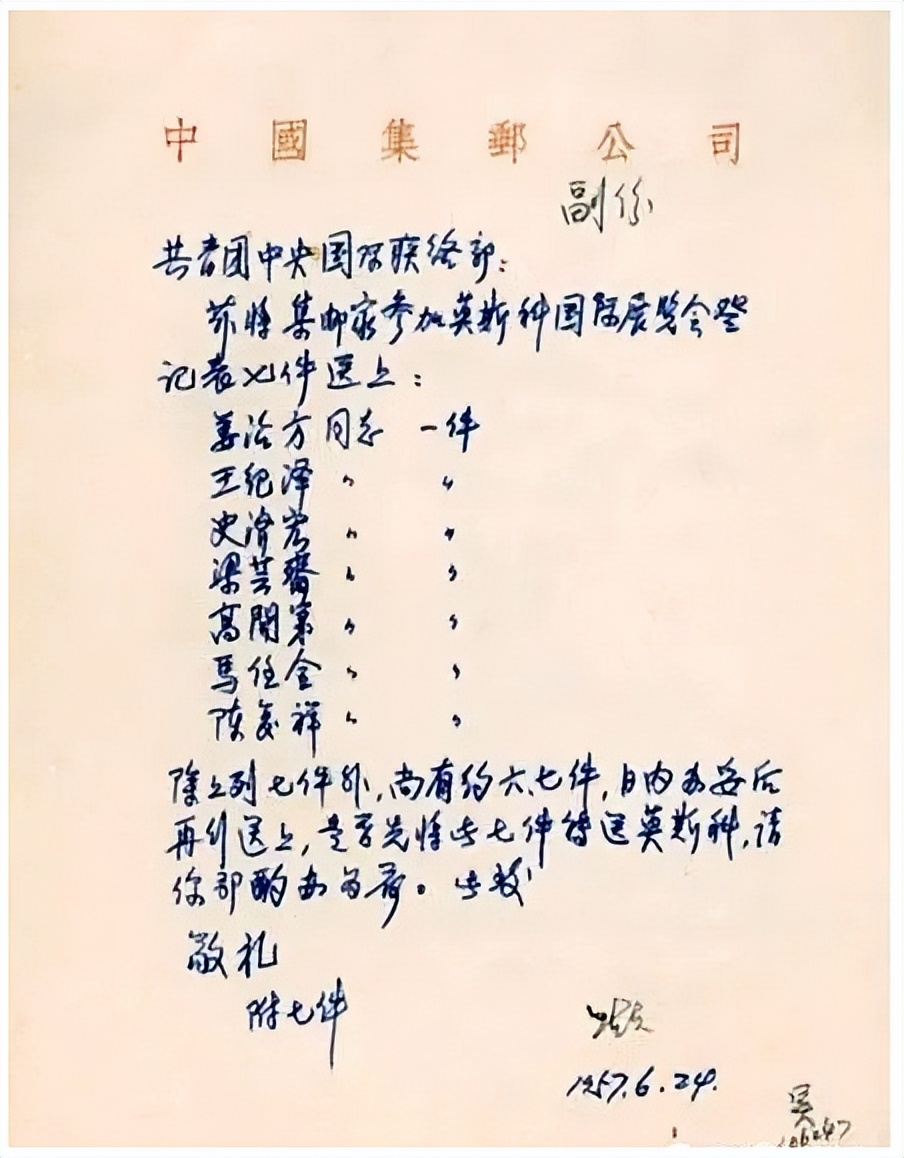 中國集郵公司
副份
共青团中央国际联络部：
茲将集邮家参加莫斯科国际展覧会登
记表七件送上：
姜治方同志 一件
王纪泽 〃 〃
史济宏 〃 〃
梁芸斋 〃 〃
高開第 〃 〃
馬任全 〃 〃
陈复祥 〃 〃
除上列七件外，尚有约六、七件，日内办妥后
再行送上，是否先将此七件转送莫斯科，请
你部酌办为荷。此致
敬礼
附七件
1957.6.24.
吴